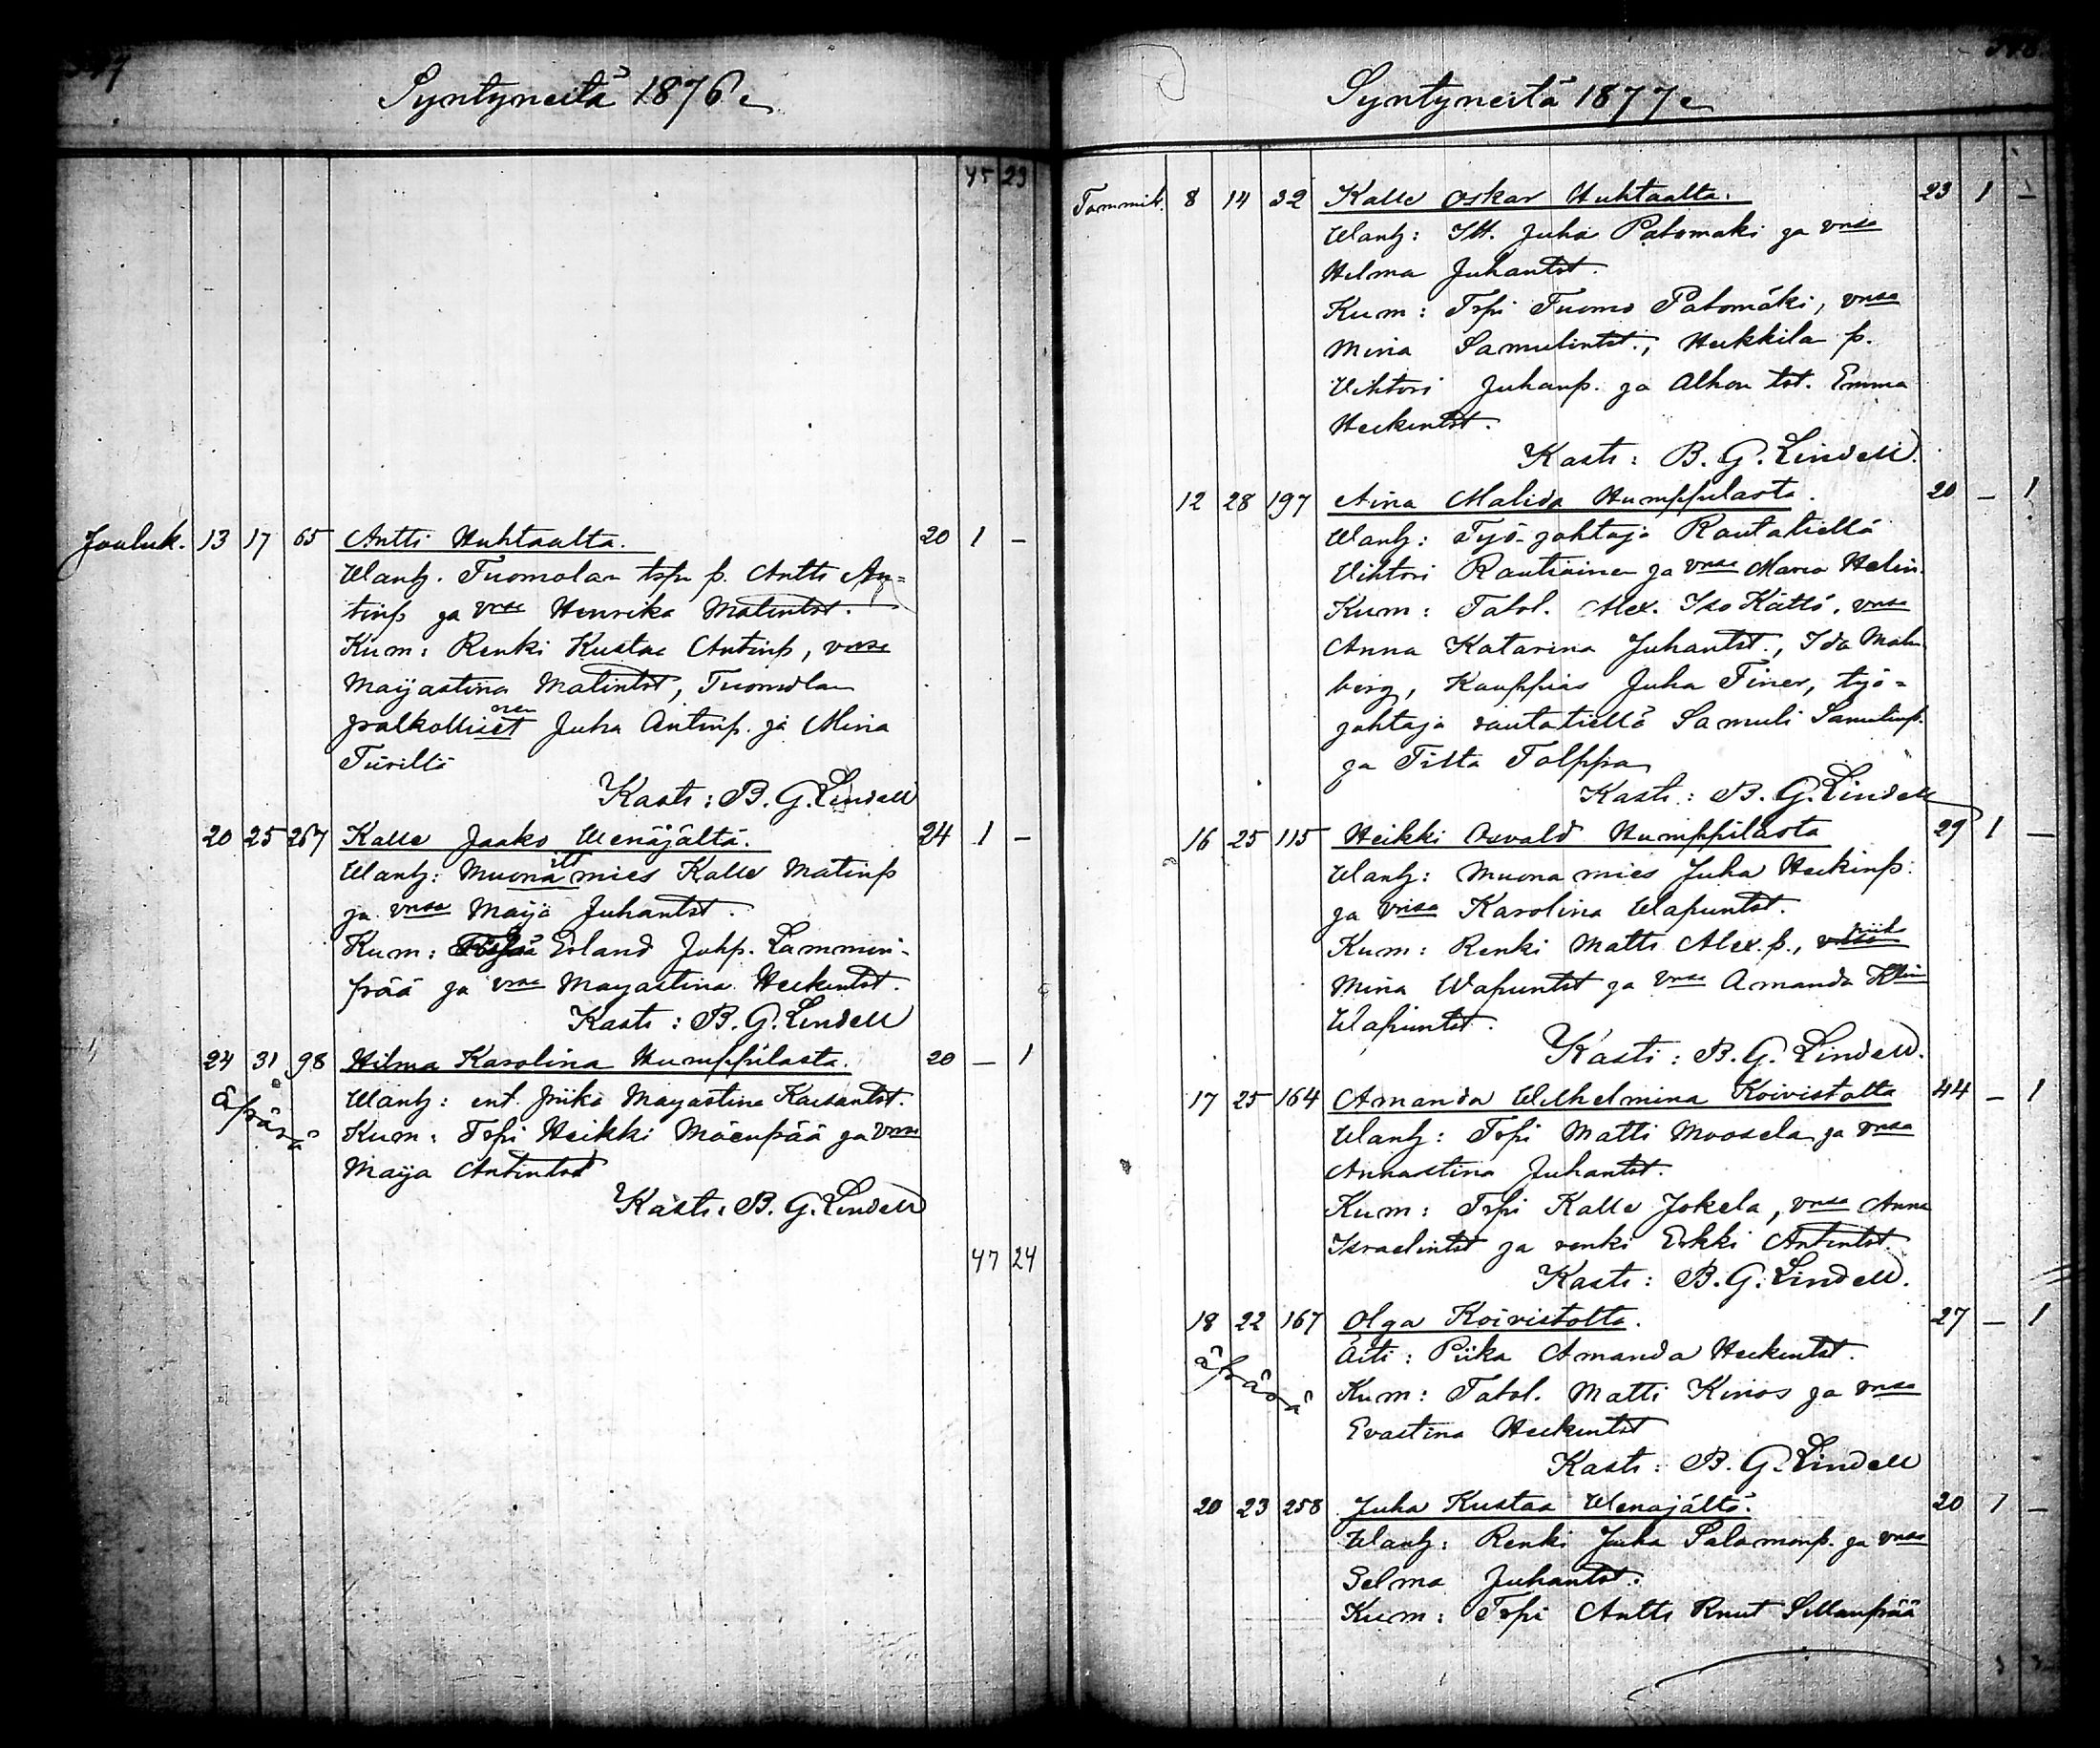 Syntyneitä 1876
45 23
Jouluk. 13 17 65 Antti Huhtaalta. 20 1 -
Wanh. Tuomolan tspn p. Antti An=
tinp ja vmsa Henrika Matintst.
Kum: Renki Kustaa Antinp, vmsa
Maijastina Matintst, Tuomolan
palkolliset Juha Antinp. ja Mina
Kasti: B. G. Lindell
20 25 267 Kalle Jaako Wenäjältä. 24 1 -
Wanh: Muona mies Kalle Matinp
ja vmsa Maija Juhantst.
Kum: Erland Juhp. Lammin-
pää ja vmsa Maijastina Heikintst.
Kasti: B. G. Lindell
24 31 98 Hilma Karolina Humppilasta. 20 - 1
äpärä
Wanh: ent. piika Majastina Kaisantst.
Kum: Trpi Heikki Mäenpää ja vmsa
Maija Antintst
Kasti: B. G. Lindell
47 24
Syntyneitä 1877
Tammik. 8 14 32 Kalle Oskar Huhtaalta. 23 1 -
Wanh: Itt. Juha Patomäki ja vmsa
Hilma Juhantst.
Kum: Trpi Tuomo Patomäki, vmsa
Mina Samulintst., Heikkilan p.
Vihtori Juhanp. ja Alhon tst. Emma
Heikintst.
Kasti: B. G. Lindell.
12 28 197 Aina Malida Humppilasta. 20 - 1
Wanh: Työ-johtaja Rautatiellä
Vihtori Rautiainen ja vmsa Maria Helin.
Kum: Talol. Alex. Iso Kättö, vmsa
Anna Katarina Juhantst., Ida Malm
berg, Kauppias Juha Finer, työ=
johtaja rautatiellä Samuli Samulinp.
ja Tilta Tolppa
Kasti: B. G. Lindell
16 25 115 Heikki Osvald Humppilasta 29 1 -
Wanh: Muona mies Juha Heikinp:
ja vmsa Karolina Wapuntst.
Kum: Renki Matti Alex. p.,
Mina Wapuntst ja vmsa Amanda
Wapuntst.
Kasti: B. G. Lindell.
17 25 164 Amanda Wilhelmina Koivistolta 44 - 1
Wanh: Trpi Matti Moosela ja vmsa
Annastina Juhantst.
Kum: Trpi Kalle Jokela, vmsa Anna
Israelintst ja renki Erkki Antintst.
Kasti: B. G. Lindell.
18 22 167 Olga Koivistolta. 27 - 1
äpärä
Äiti: Piika Amanda Heikintst.
Kum: Talol. Matti Kinos ja vmsa
Evastina Heikintst
Kasti: B. G. Lindell
20 23 258 Juha Kustaa Wenajältä. 20 1 -
Wanh: Renki Juha Salamonp. ja vmsa
Selma Juhantst.
Kum: Trpi Antti Knut Sillanpää